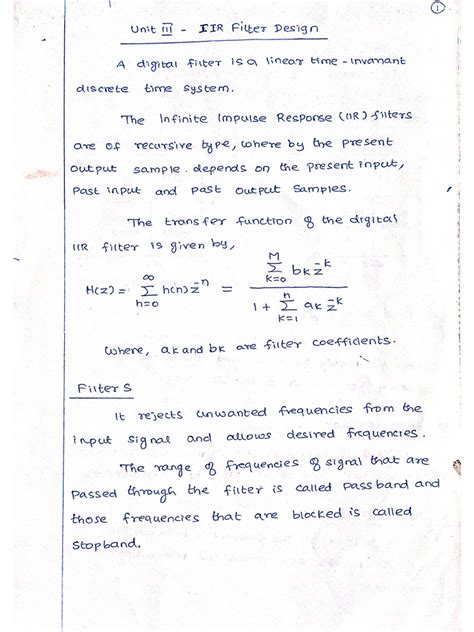 1
Unit III - IIR Filter Design
A digital filter is a linear time-invariant
discrete time system.
The Infinite Impulse Response (IIR) filters
are of recursive type, where by the present
output sample. depends on the present input,
past input and past output samples.
The transfer function of the digital
IIR filter is given by,
H(z) = ∑_{n=0}^{∞} h(n) z^{-n} = \frac{∑_{k=0}^{M} b_k z^{-k}}{1 + ∑_{k=1}^{n} a_k z^{-k}}
Where, ak and bk are filter coefficients.
Filters
It rejects unwanted frequencies from the
input signal and allows desired frequencies.
The range of frequencies of signal that are
passed through the filter is called passband and
those frequencies that are blocked is called
Stopband.